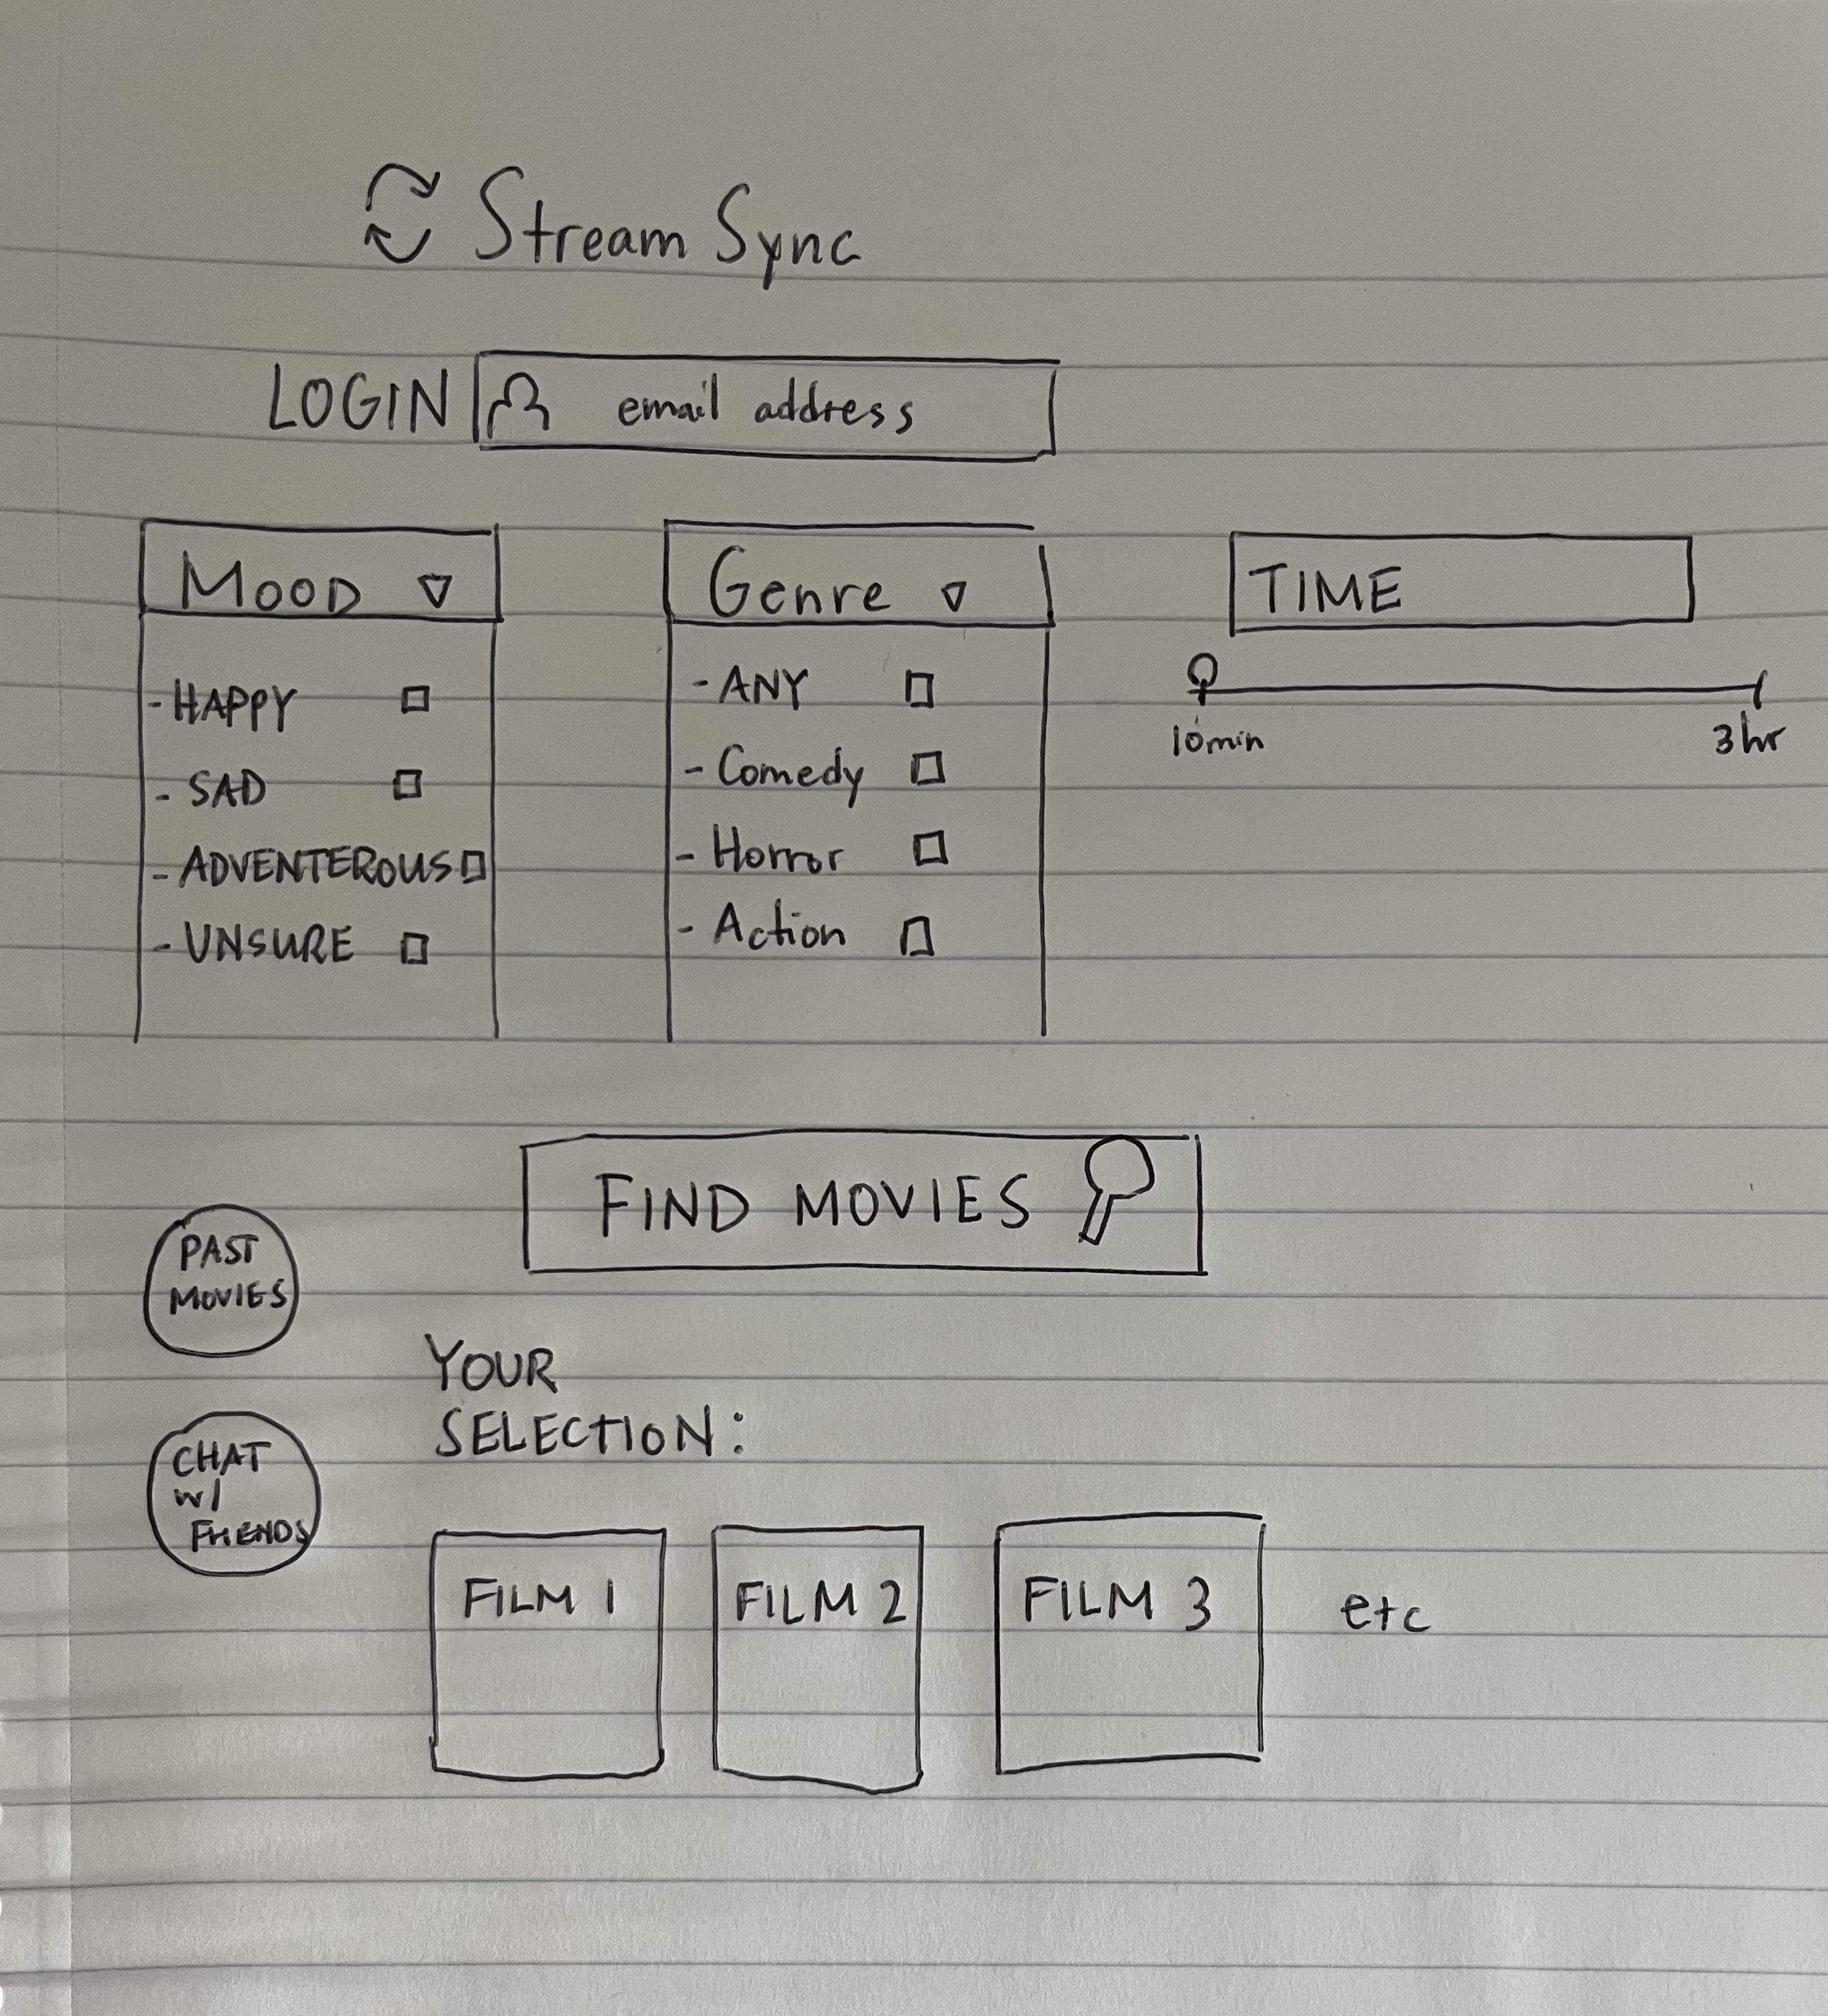 Stream Sync
LOGIN
email address
MOOD
- HAPPY
- SAD
- ADVENTEROUS
- UNSURE
Genre
- ANY
- Comedy
- Horror
- Action
TIME
10min
3hr
FIND MOVIES
PAST
MOVIES
CHAT
w/
FRIENDS
YOUR
SELECTION:
FILM 1
FILM 2
FILM 3
etc